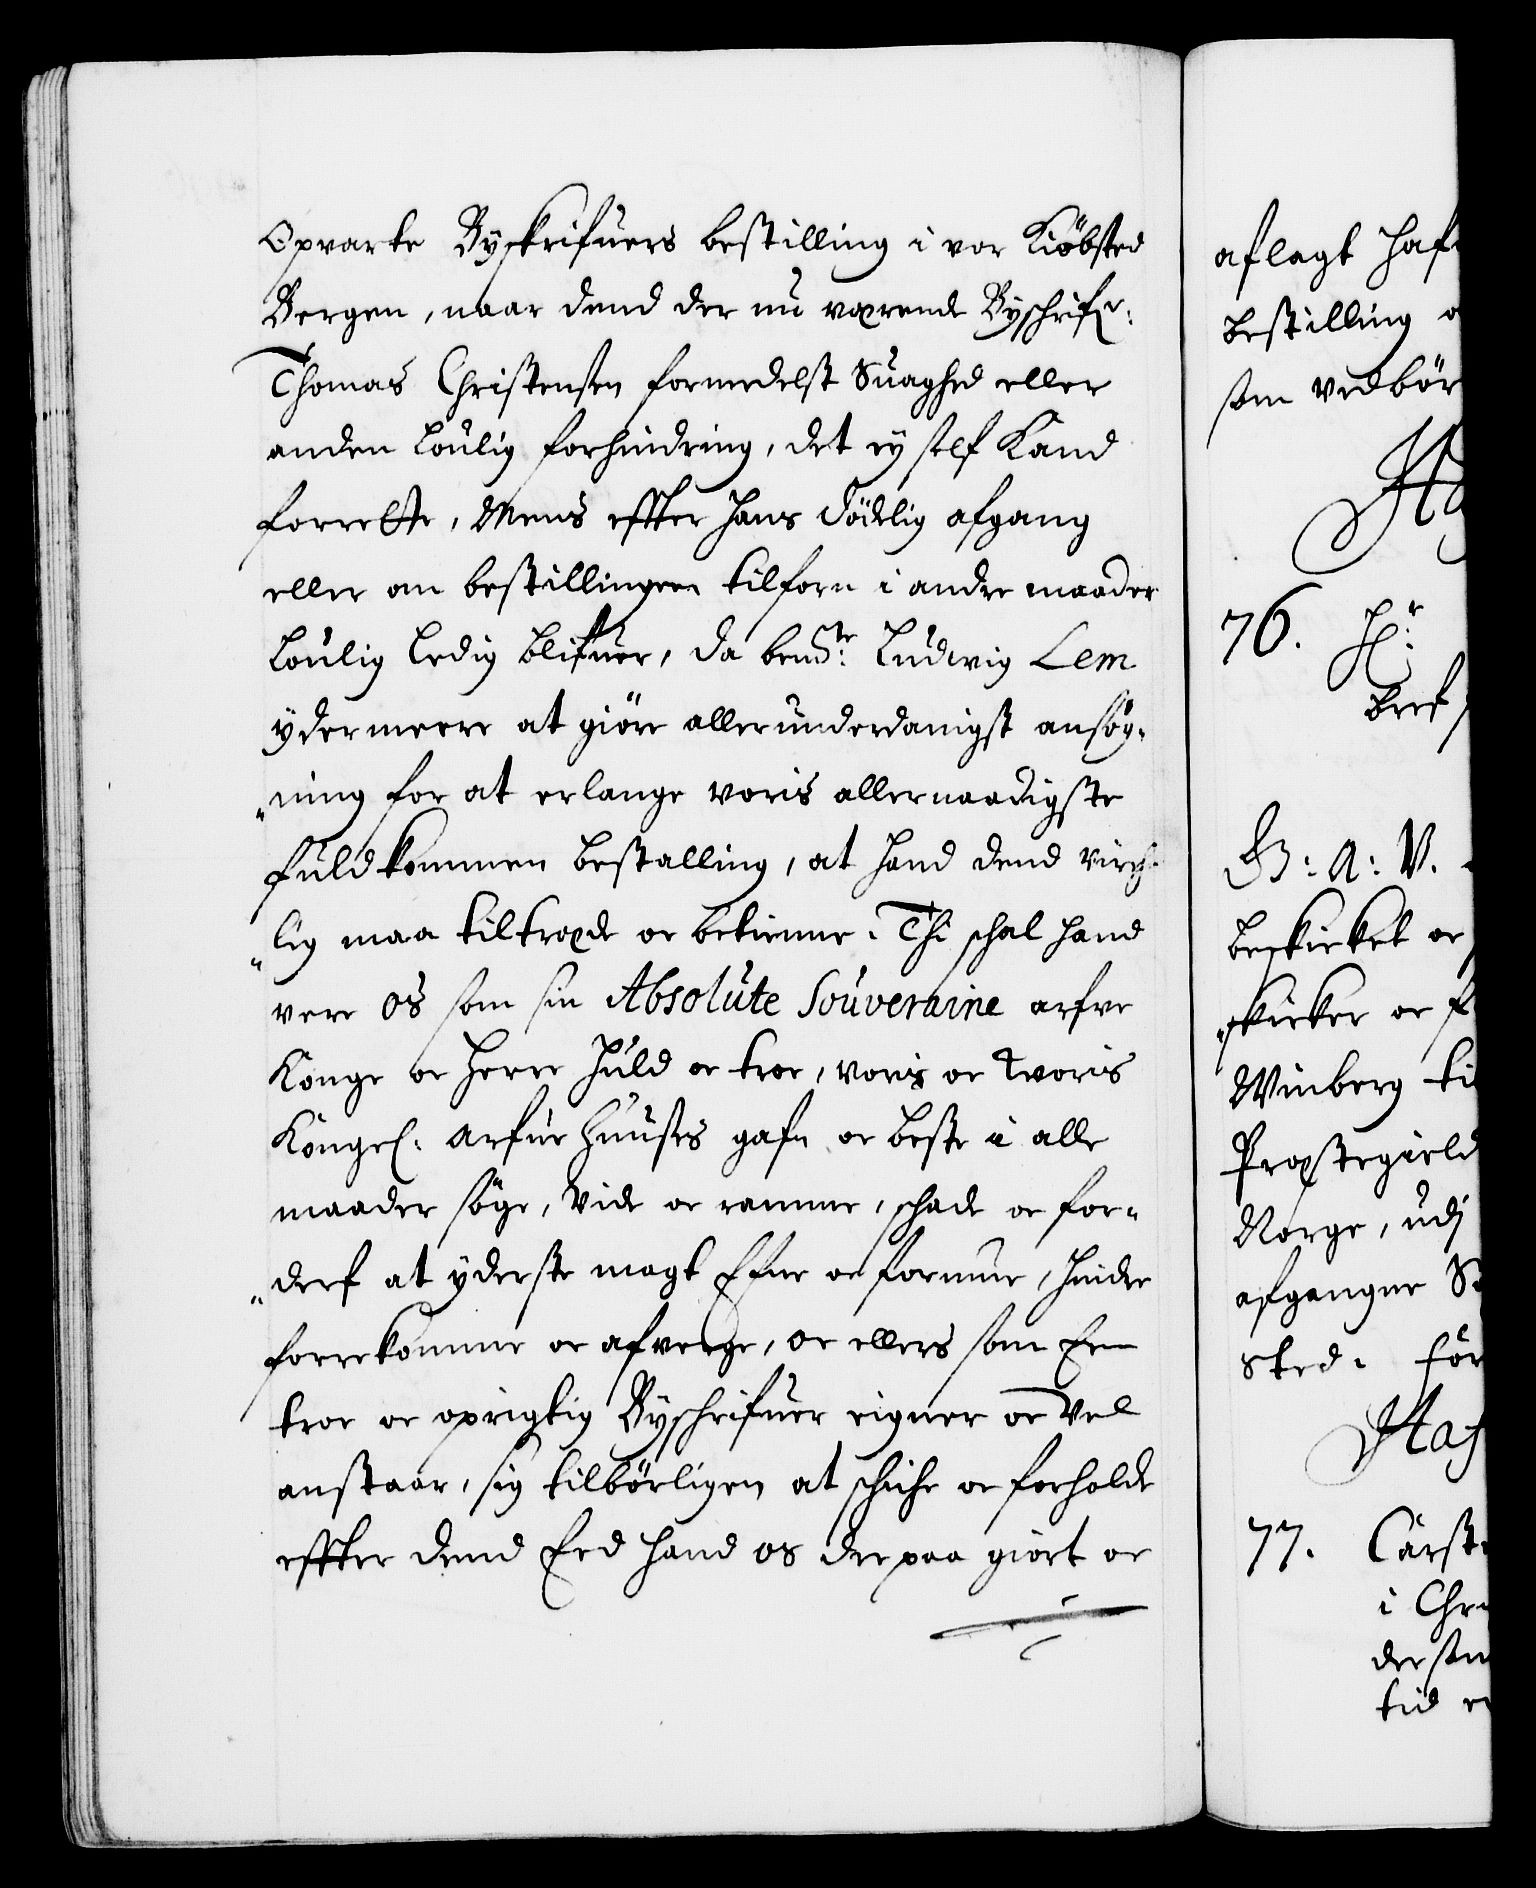 Opvarte Byskrifuers bestilling i vor Kiöbsted
Bergen, naar dend der nu værende Byschrifr:
Thomas Christensen formedelst Suaghed eller
anden Loulig forhindring, det ey self Kand
forrette, Mens effter hans dödelig afgang
eller om bestillingen tilforn i andre maader
Loulig Ledig blifuer, da bemte: Ludvig Lem
ydermeere at giöre allerunderdanigst ansög-
"ning for at erlange voris allernaadigste
fuldkommen bestalling, at hand dend virche-
"lig maa tiltræde oc betienne. Thi schal hand
vere os som sin Absolute Souveraine arfve
Konge oc Herre huld oc troe, voris oc Woris
Kongel: Arfue Huuses gafn oc beste i alle
maader söge, Vide oc ramme, schade oc for-
"derf at yderste magt Efne oc formue, hindre
forrekomme oc afverge, oc ellers som Een
troe oc oprigtig Byschrifuer eigner oc Vel
anstaar, sig tilbörligen at schiche oc forholde
effter dend Eed hand os derpaa giort oc
aflagt haf
bestilling
som vedbör
76. Hr:
beck
B: A: V.
beskicket oc
"skicker oc
Winberg ti
Præstegield
Norge, udj
afgangne
sted.
Haf
77. Carst
i Chr
dersom
tid